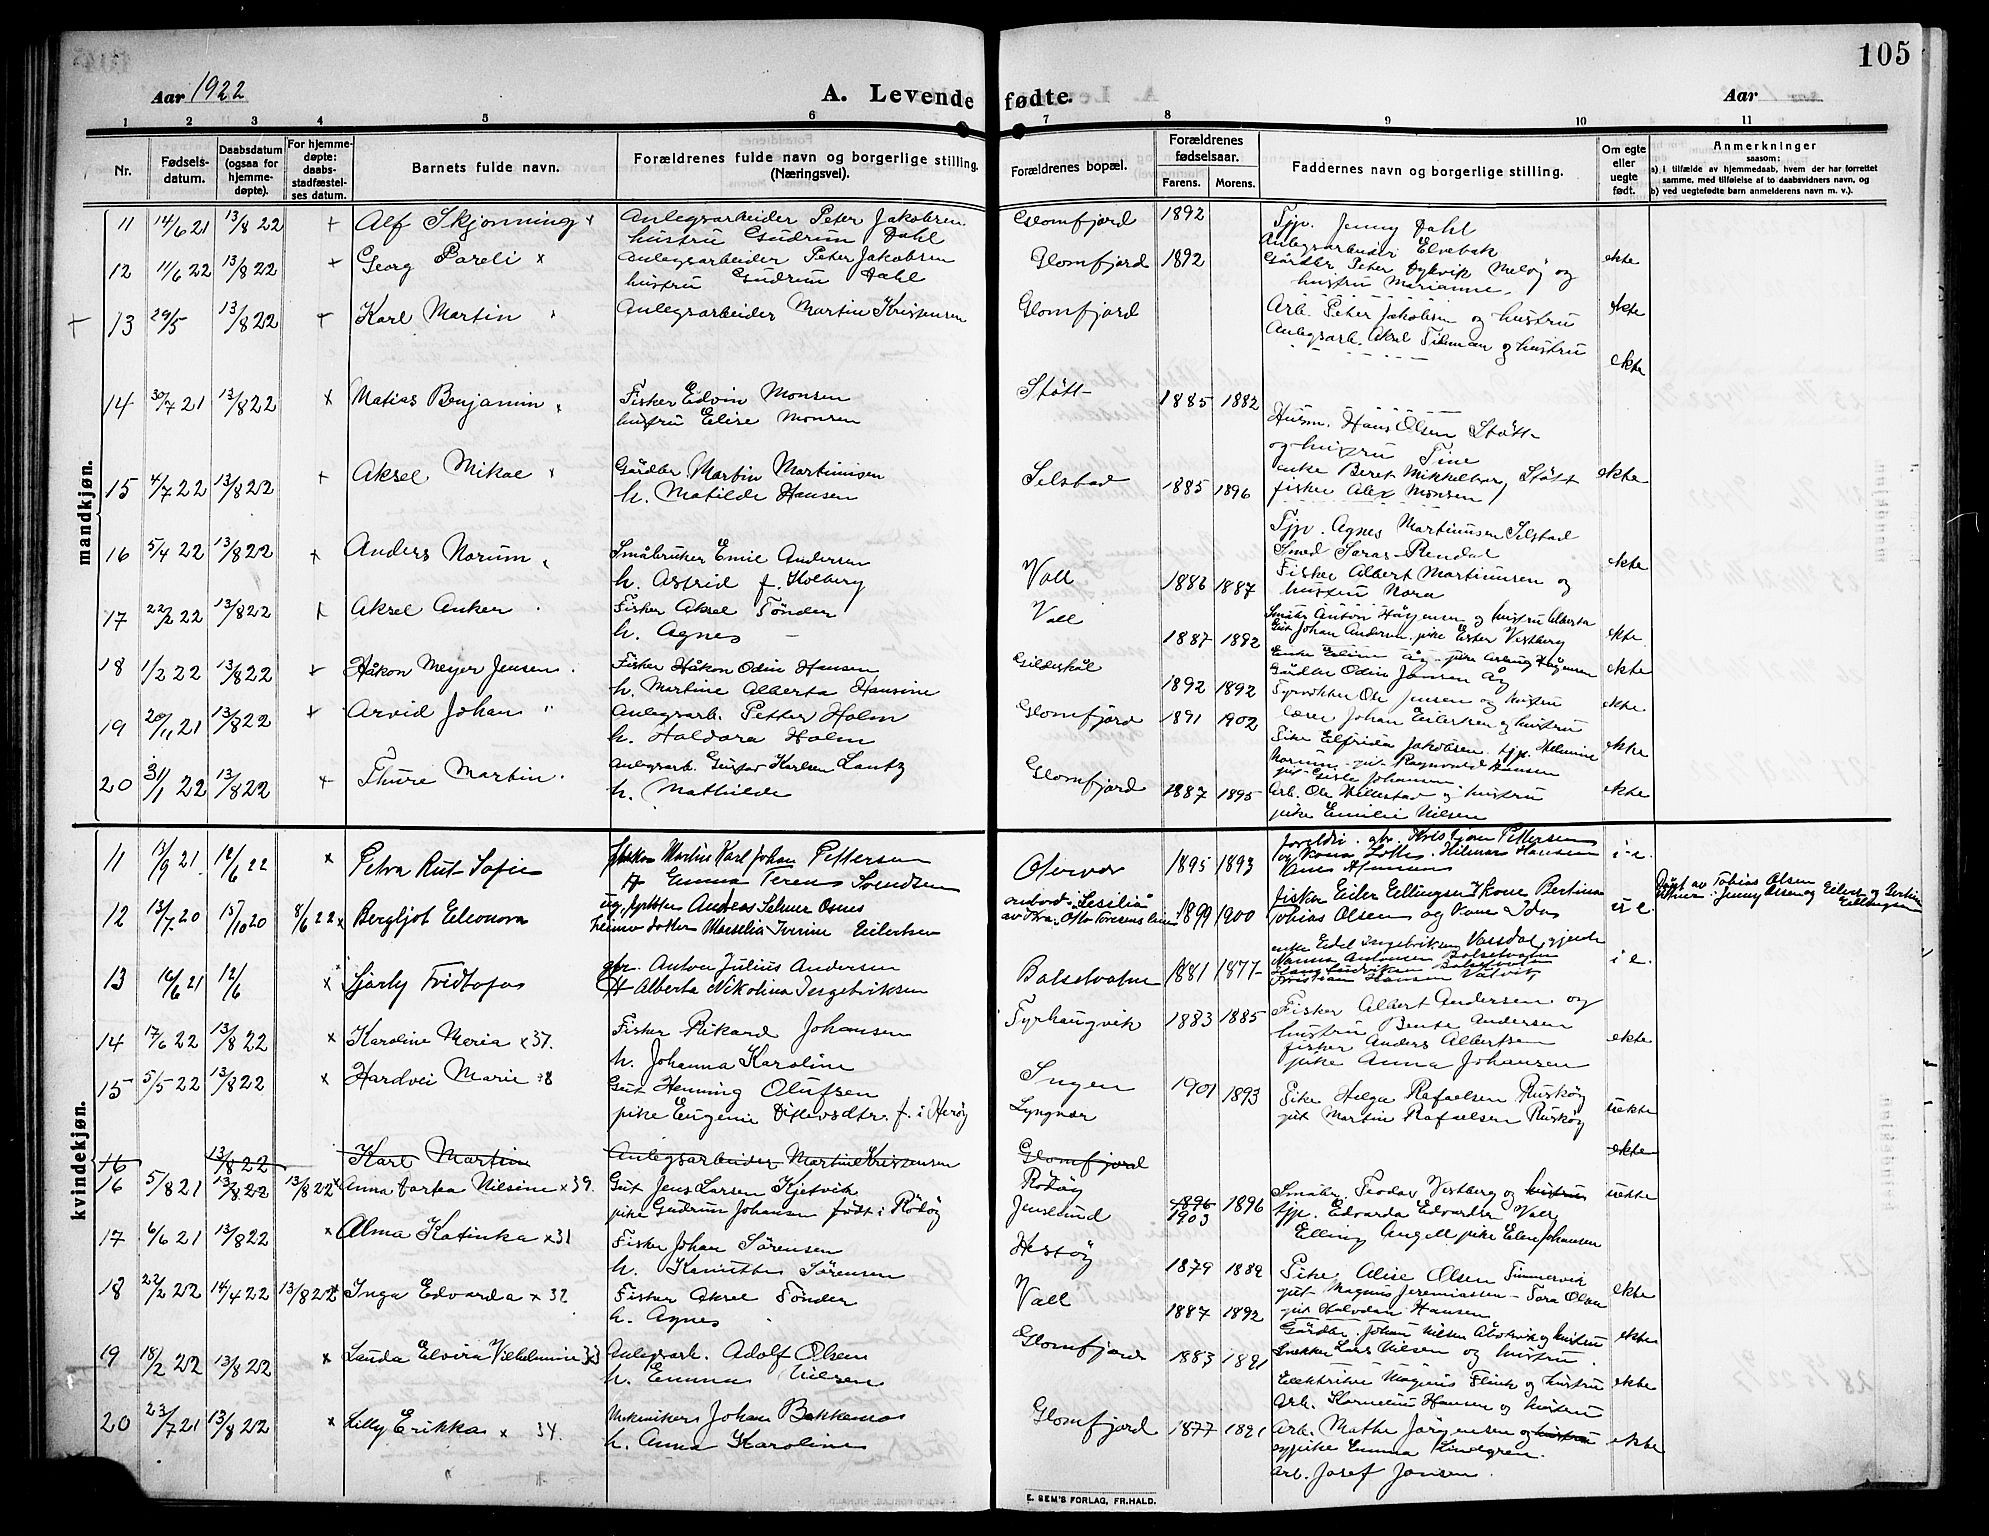 105
Aar 1922
A. Levende fødte.
Aar
1 2 3 4 5 6 7 8 9 10 11
Nr.
Fødsels-
datum.
Daabsdatum
(ogsaa for
hjemme-
døpte).
For hjemme-
døpte:
daabs-
stadfæstel-
ses datum.
Barnets fulde navn.
Forældrenes fulde navn og borgerlige stilling.
(Næringsvei).
Forældrenes bopæl.
Forældrenes
fødselsaar.
Farens. Morens.
Faddernes navn og borgerlige stilling.
Om egte
eller
uegte
født.
Anmerkninger
saasom:
a) i tilfælde av hjemmedaab, hvem der har forrettet
samme, med tilføielse af to daabsvidners navn, og
b) ved uegtefødte barn anmelderens navn m. v.).
mandkjøn.
11 14/6 21 13/8 22 + Alf Skjønning x Anlegsarbeider Peter Jakobsen Glomfjord 1892 Tjp. Jenny Dahl
hustru Gudrun Dahl Anlegsarbeider Elvebak
12 11/6 22 13/8 22 + Georg Pareli x Anlegsarbeider Peter Jakobsen Glomfjord 1892 Gårdbr. Peter Dykvik Meløy og ekte
hustru Gudrun Dahl hustru Marianne.
+ 13 29/5 13/8 22 + Karl Martin Anlegsarbeider Martin Kristensen Glomfjord Arb. Peter Jakobsen og hustru ekte
Anlegsarb. Aksel Tideman og hustru
ekte
14 30/7 21 13/8 22 x Matias Benjamin Fisker Edvin Monsen Støtt 1885 1882
hustru Elise Monsen Husm. Hans Olsen Støtt
og hustru Tine
15 4/7 22 13/8 22 + Aksel Mikal Gårdbr Martin Martinusen Selstad 1885 1896 enke Beret Mikkelborg Støtt ekte
h. Matilde Hansen fisker Alex Monsen
Tjp. Agnes Martinusen Selstad
16 5/4 22 13/8 22 x Anders Norum Småbruker Emil Andersen Vall 1886 1887 Smed Rendal ekte
h. Astrid f. Holberg Fisker Albert Martinusen og
hustru Nora
17 22/2 22 13/8 22 x Aksel Anker Fisker Aksel Tønder Vall 1887 1892 Småbr Anton Hågensen og hustru Alberta
h. Agnes Gut Johan Andersen, pike Ester Vestberg ekte
18 1/2 22 13/8 22 + Håkon Meyer Jensen Fisker Håkon Odin Hansen Gildeskål 1892 1892 Enke Elina Åg ekte
h. Martine Alberta Hansine Gårdbr Odin Jensen Åg
19 20/11 21 13/8 22 + Arvid Johan Anlegsarb. Petter Holm Glomfjord 1891 1902 Fyrvokter Ole Jensen og hustru ekte
h. Haldora Holm lærer Johan Eilertsen og hustru
20 31/1 22 13/8 22 + Thure Martin Anlegsarb. Gustav Karlsen Lantz Glomfjord 1887 1895 Pike Elfrida Jakobsen. tjp. Helmine ekte
h. Mathilde Norum
Arb. Ole Hellestad og hustru ekte
pike Emilie Nilsen
kvindekjøn.
11 13/9 21 12/6 22 x Petra Rut Sofie fisker Martin Karl Johan Pettersen Otervær 1895 1893 foreldri. gbr. Kristjan Pettersen i-e.
Emma Svendsen og kona Lotte. Hilmar Hansen
12 13/7 20 15/10 20 8/6 22 x Bergljot Eleonora ug. Andreas Selmer Osnes ombord "Cesilia" 1899 1900 fisker Eiler Ellingsen Kone Bertina u e.
Marselia Iverine Eilertsen Tobias Olsen og Kone Ida
Døpt av Tobias Olsen
13 16/6 21 12/6 x Sjarly Fridtofas gbr. Anton Julius Andersen Balsetvatne 1881 1877 i e.
Alberta Nikolina Ingebriksen
14 17/6 22 13/8 22 x Karoline Meria x 37. Fisker Rikard Johansen Fyrhaugvik 1883 1885 Fisker Albert Andersen og ekte
h. Johanna Karoline hustru Bente Andersen
fisker Anders Albertsen
pike Anna Johansen
15 5/5 22 13/8 22 x Hardvei Marie 38 Gut Henning Olufsen Ingen 1901 1893 Pike Helga Rafaelsen Ruskøy uekte
pike Eugenie Ditlevsdtr. f. i Herøy Lyngvær gut Martin Rafaelsen Ruskøy
16 13/8 22 Karl Martin Anlegsarbeider Martin Kristensen Glomfjord ekte
16 5/8 21 13/8 22 13/8 22 x Anna Nilsine x 39. Gut Jens Larsen Kjetvik Rødøy 1896 1903 1896 Småbr. Teodor Vestberg og hustru uekte
pike Gudrun Johansen født i Rødøy Jenslund tjp. Edvarda Edvardsen Vall
17 6/6 21 13/8 22 x Alma Katinka x 31 Fisker Johan Sørensen Hestøy 1879 1889 Elling Angell pike Eline Johansen
h. Sørensen Pike Alise Olsen Timmervik ekte
18 22/2 22 14/4 22 13/8 22 x Inga Edvarda x 32 Fisker Aksel Tønder Vall 1887 1892 gut Magnus Jeremiassen - Tora Olsen
h. Agnes gut Halvdan Hansen ekte
19 18/2 22 13/8 22 x Lauda Elvira Vilhelmine 33 Anlegsarb. Adolf Olsen Glomfjord 1883 1891 Gårdbr. Johan Nilsen og hustru
h. Emma Nilsen Snekker Lars Nilsen og hustru. ekte
Elektriker Magnus Flink og hustru
20 23/7 21 13/8 22 x Lilly Erikka x 34. Mekenikers Johan Bakkemo Glomfjord 1877 1891 Arb. Kornelius Hansen og hustru
h. Anna Karoline Arb. Mathe Jørgensen og hustru ekte
pike Emma Lindgren
Arb. Josef Jonsen.
E. SEM'S FORLAG, FR.HALD.